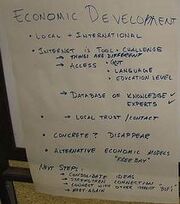 ECONOMIC DEVELOPMENT
• LOCAL + INTERNATIONAL
• INTERNET IS TOOL + CHALLENGE
→ THINGS ARE DIFFERENT
→ ACCESS • GOT
• LANGUAGE
• EDUCATION LEVEL
→ DATABASE OF KNOWLEDGE ✓
EXPERTS ✓
• → LOCAL TRUST / CONTACT
• CONCRETE? DISAPPEAR
• ALTERNATIVE ECONOMIC MODELS
"FREEBAY"
NEXT STEPS:
→ CONSOLIDATE IDEAS
→ STRENGTHEN CONNECTION
→ CONNECT WITH OTHER
→ MEET AGAIN